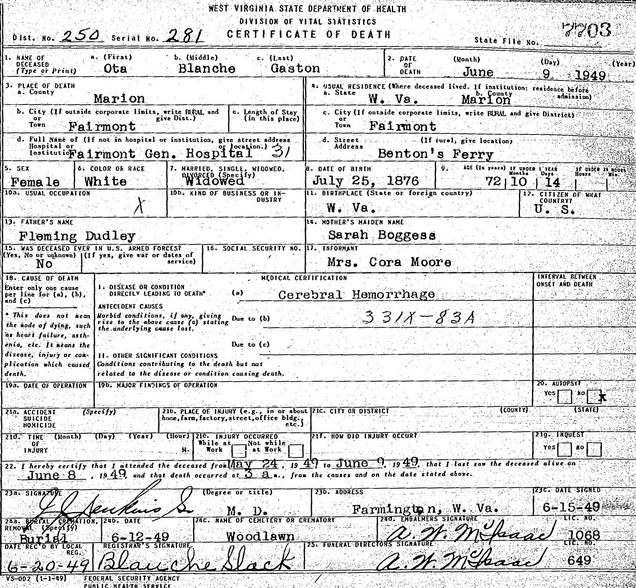 WEST VIRGINIA STATE DEPARTMENT OF HEALTH
DIVISION OF VITAL STATISTICS
Dist. No. 250 Serial No. 281 CERTIFICATE OF DEATH State File No. 7703
1. NAME OF DECEASED (Type or Print) a. (First) b. (Middle) c. (Last) 2. DATE OF DEATH (Month) (Day) (Year)
Ota Blanche Gaston June 9 1949
3. PLACE OF DEATH 4. USUAL RESIDENCE (Where deceased lived. If institution: residence before admission)
a. County Marion a. State W. Va. b. County Marion
b. City (If outside corporate limits, write RURAL and give Dist.) or Town c. Length of Stay (in this place) c. City (If outside corporate limits, write RURAL and give District) or Town
Fairmont Fairmont
d. Full Name of (If not in hospital or institution, give street address or location.) Hospital or Institution d. Street Address (If rural, give location)
Fairmont Gen. Hospital 31 Benton's Ferry
5. SEX 6. COLOR OR RACE 7. MARRIED, SINGLE, WIDOWED, DIVORCED (Specify) 8. DATE OF BIRTH 9. AGE (In years) IF UNDER 1 YEAR IF UNDER 24 HOURS
Female White Widowed July 25, 1876 72 10 14
10a. USUAL OCCUPATION 10b. KIND OF BUSINESS OR INDUSTRY 11. BIRTHPLACE (State or foreign country) 12. CITIZEN OF WHAT COUNTRY?
X W. Va. U. S.
13. FATHER'S NAME 14. MOTHER'S MAIDEN NAME
Fleming Dudley Sarah Boggess
15. WAS DECEASED EVER IN U.S. ARMED FORCES? (Yes, No or unknown) (If yes, give war or dates of service) 16. SOCIAL SECURITY NO. 17. INFORMANT
No Mrs. Cora Moore
18. CAUSE OF DEATH MEDICAL CERTIFICATION INTERVAL BETWEEN ONSET AND DEATH
Enter only one cause per line for (a), (b), and (c)
I. DISEASE OR CONDITION DIRECTLY LEADING TO DEATH* (a) Cerebral Hemorrhage
ANTECEDENT CAUSES
Morbid conditions, if any, giving rise to the above cause (a) stating the underlying cause last. Due to (b) 331X-83A
Due to (c)
* This does not mean the mode of dying, such as heart failure, asthenia, etc. It means the disease, injury or complication which caused death.
II. OTHER SIGNIFICANT CONDITIONS
Conditions contributing to the death but not related to the disease or condition causing death.
19a. DATE OF OPERATION 19b. MAJOR FINDINGS OF OPERATION 20. AUTOPSY? Yes No X
21a. ACCIDENT SUICIDE HOMICIDE (Specify) 21b. PLACE OF INJURY (e.g., in or about home, farm, factory, street, office bldg., etc.) 21c. CITY OR DISTRICT (COUNTY) (STATE)
21d. TIME OF INJURY (Month) (Day) (Year) (Hour) M. 21e. INJURY OCCURRED While at Work Not while at Work 21f. HOW DID INJURY OCCUR? 21g. INQUEST Yes No
22. I hereby certify that I attended the deceased from May 24, 1949 to June 9, 1949, that I last saw the deceased alive on
June 8, 1949 and that death occurred at 3 a m., from the causes and on the date stated above.
23a. SIGNATURE (Degree or title) 23b. ADDRESS 23c. DATE SIGNED
Jenkins M. D. Farmington, W. Va. 6-15-49
24a. BURIAL, CREMATION REMOVAL (Specify) 24b. DATE 24c. NAME OF CEMETERY OR CREMATORY 24d. EMBALMERS SIGNATURE LIC. NO.
Burial 6-12-49 Woodlawn A. W. McIsaac 1068
DATE REC'D BY LOCAL REG. REGISTRAR'S SIGNATURE 25. FUNERAL DIRECTORS SIGNATURE LIC. NO.
6-20-49 Blanche Slack A. W. McIsaac 649
VS-002 (1-1-49) FEDERAL SECURITY AGENCY
PUBLIC HEALTH SERVICE